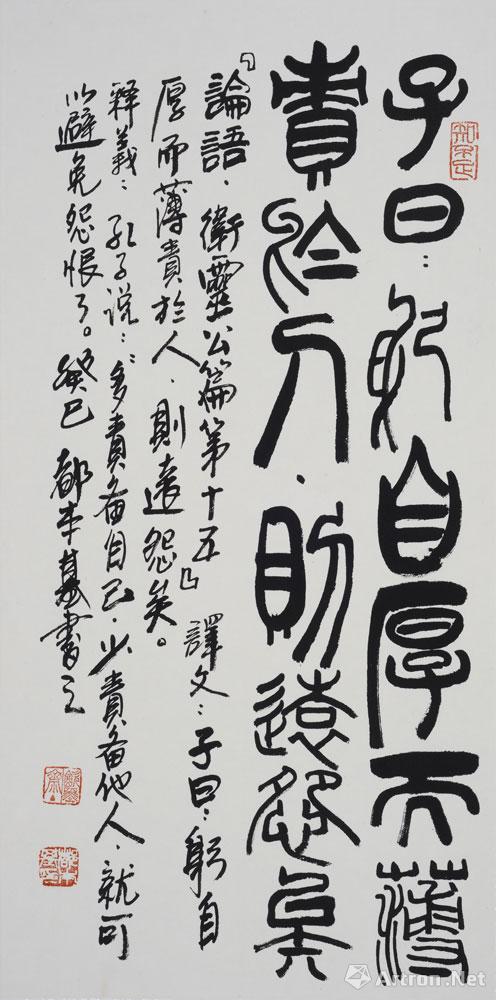 子曰：躬自厚而薄
責於人，則遠怨矣
『論語·衛靈公篇第十五』譯文：子曰：躬自
厚而薄責於人，則遠怨矣。
釋義：孔子说：“多責备自己，少責备他人，就可
以避免怨恨了。癸巳 都本基書之
知不足
Artron.Net